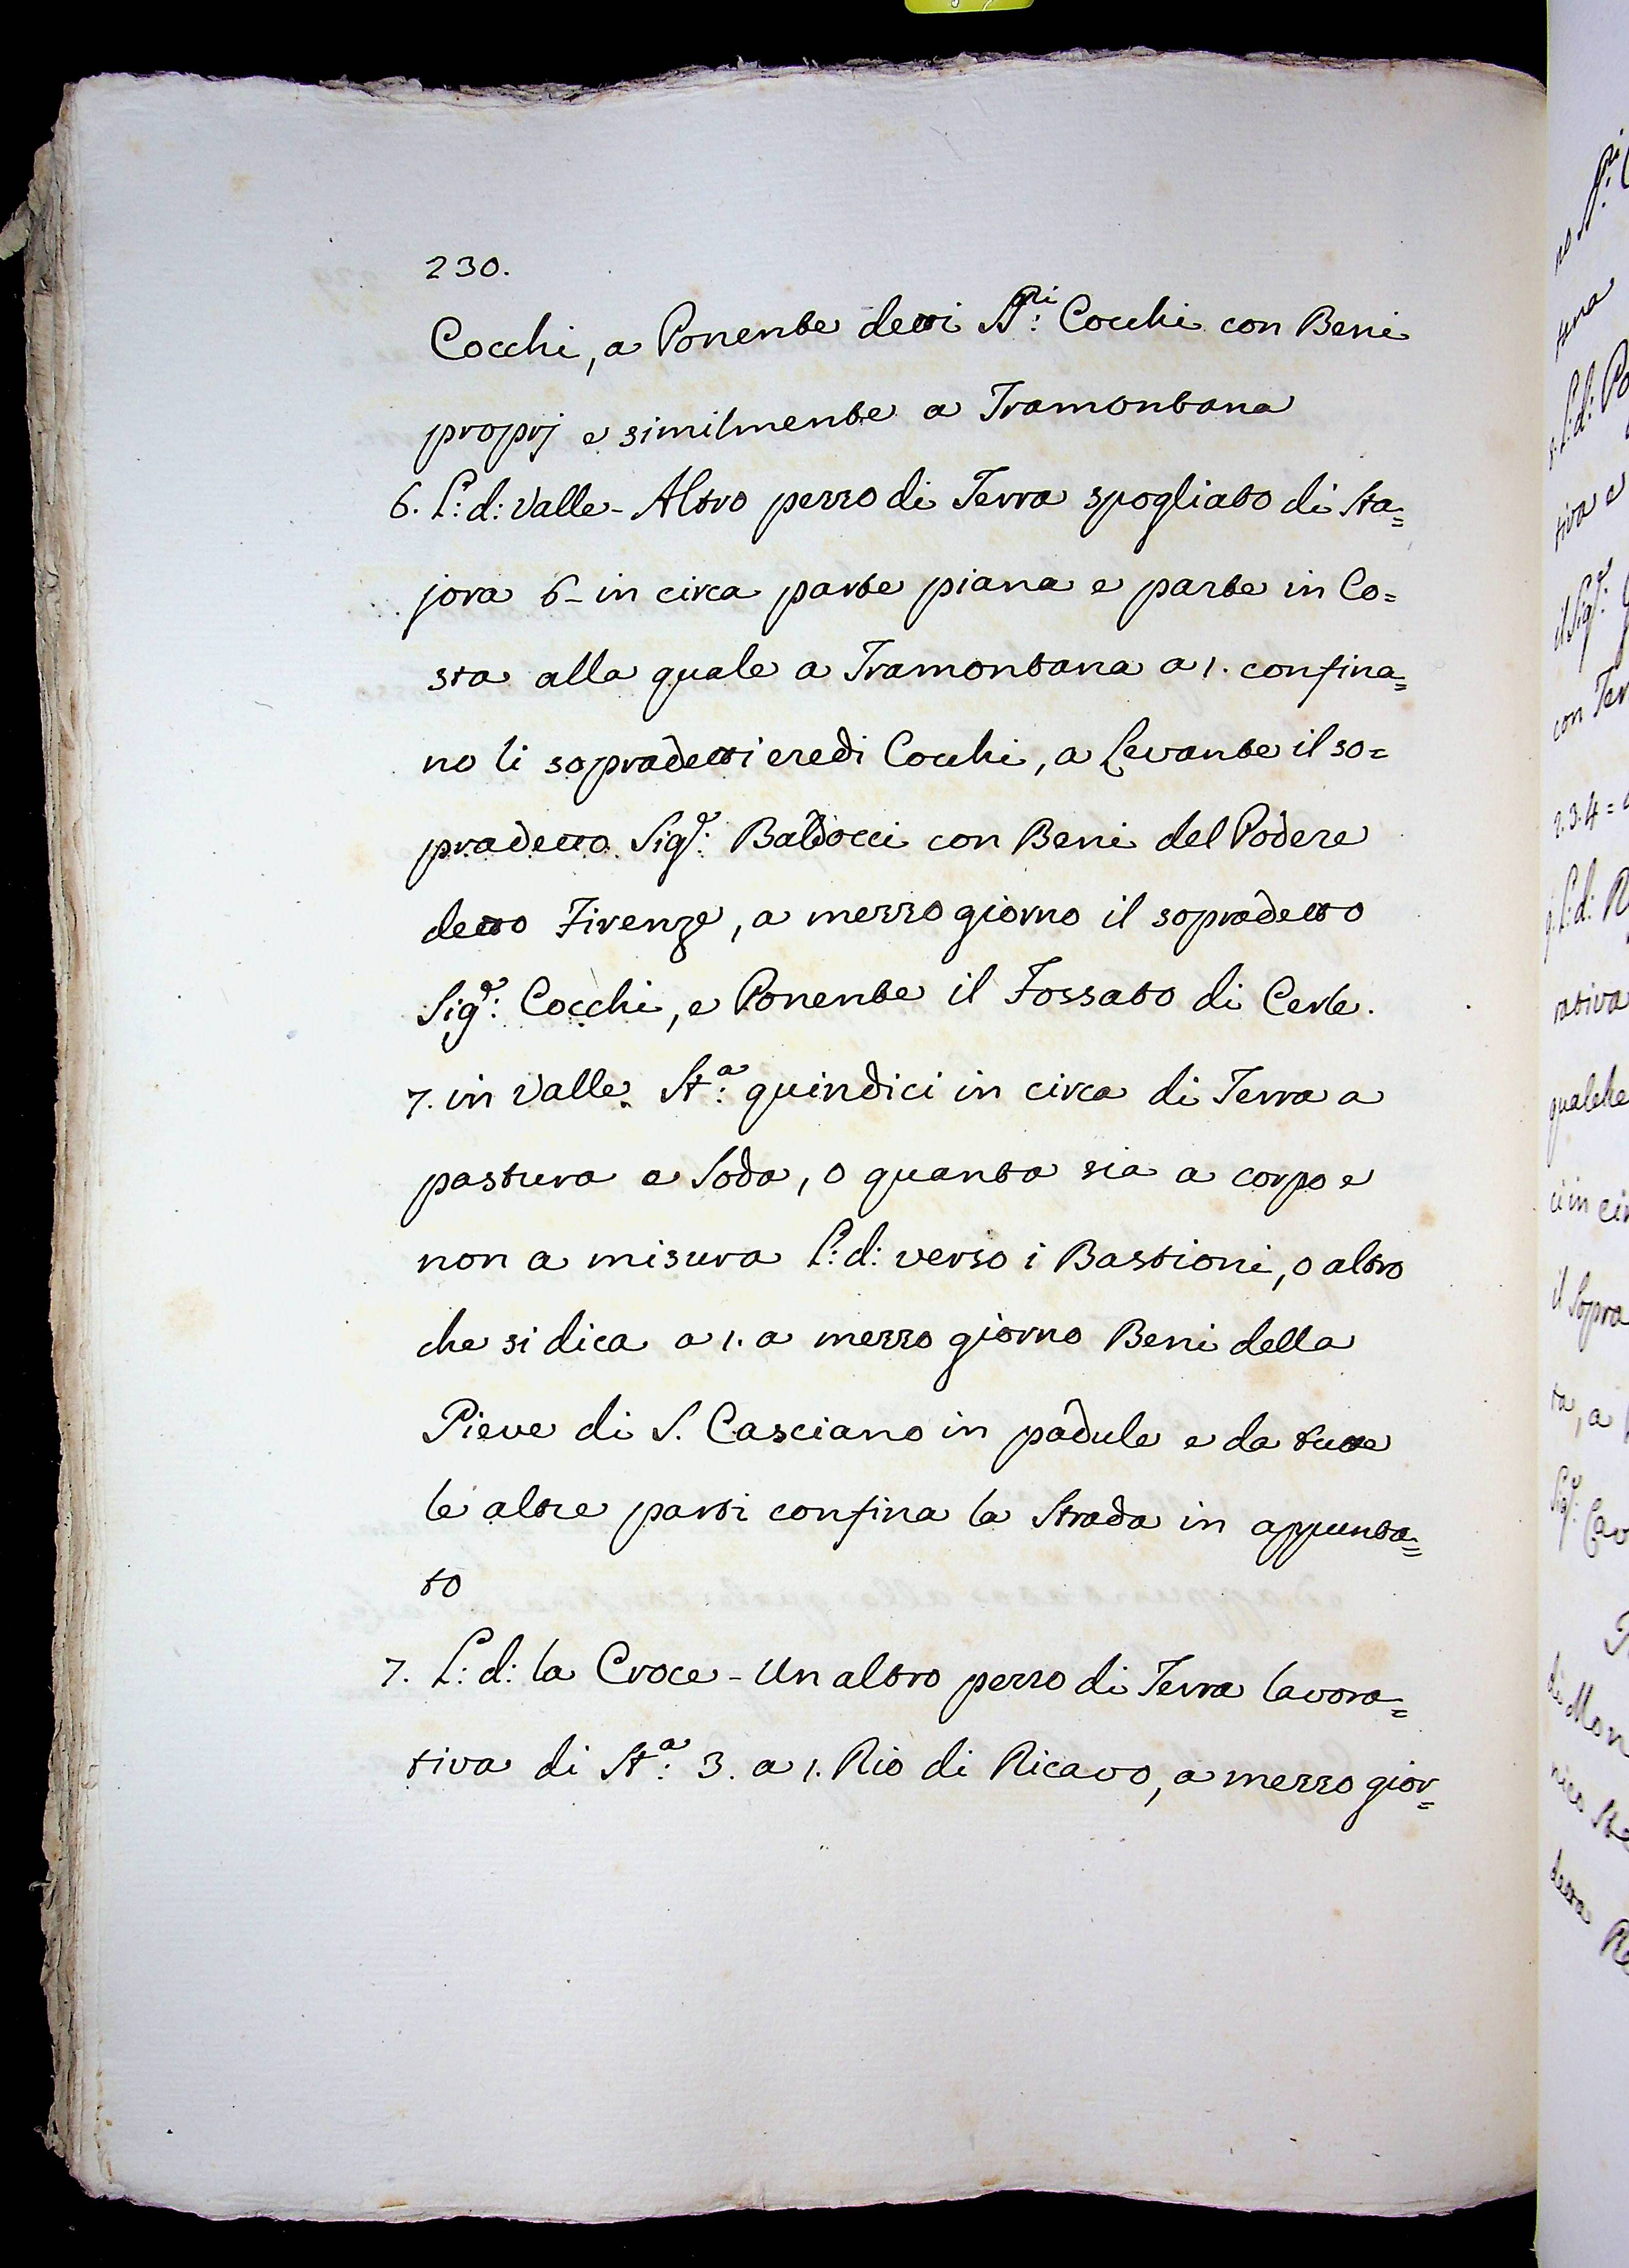 230.
Cocchi, a Ponente detti S.ri: Cocchi con Beni
proprj e similmente a Tramontana
6. L: d: Valle - Altro pezzo di Terra spogliato di Sta=
jora 6 - in circa parte piana e parte in Co=
sta alla quale a Tramontana a 1. confina=
no li sopradetti eredi Cocchi, a Levante il so=
pradetto Sig.e: Baldocci con Beni del Podere
detto Firenze, a mezzo giorno il sopradetto
Sig.e: Cocchi, e Ponente il Fossato di Cerle.
7. in Valle. St.a: quindici in circa di Terra a
pastura e Soda, o quanto sia a corpo e
non a misura L: d: verso i Bastioni, o altro
che si dica a 1. a mezzo giorno Beni della
Pieve di S. Casciano in padule e da tutte
le altre parti confina la Strada in appunta=
to
7. L: d: la Croce - Un altro pezzo di Terra lavora=
tiva di St.a: 3. a 1. Rio di Ricavo, a mezzo gior=